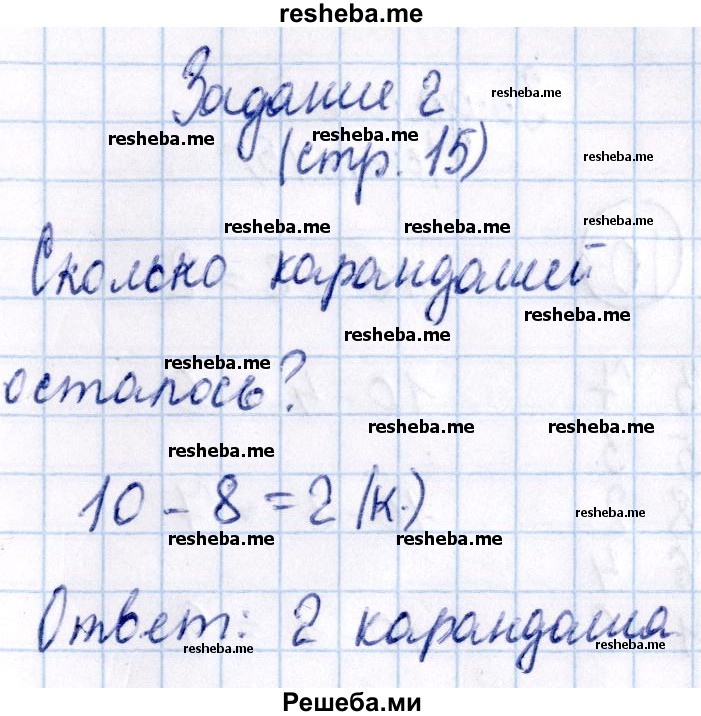 resheba.me
Задание 2
resheba.me
resheba.me
resheba.me
(стр. 15)
resheba.me
resheba.me
resheba.me
resheba.me
Сколько карандашей
resheba.me
resheba.me
resheba.me
осталось?
resheba.me
resheba.me
resheba.me
10 - 8 = 2 (к.)
resheba.me
resheba.me
resheba.me
Ответ: 2 карандаша
resheba.me
resheba.me
Решеба.ми